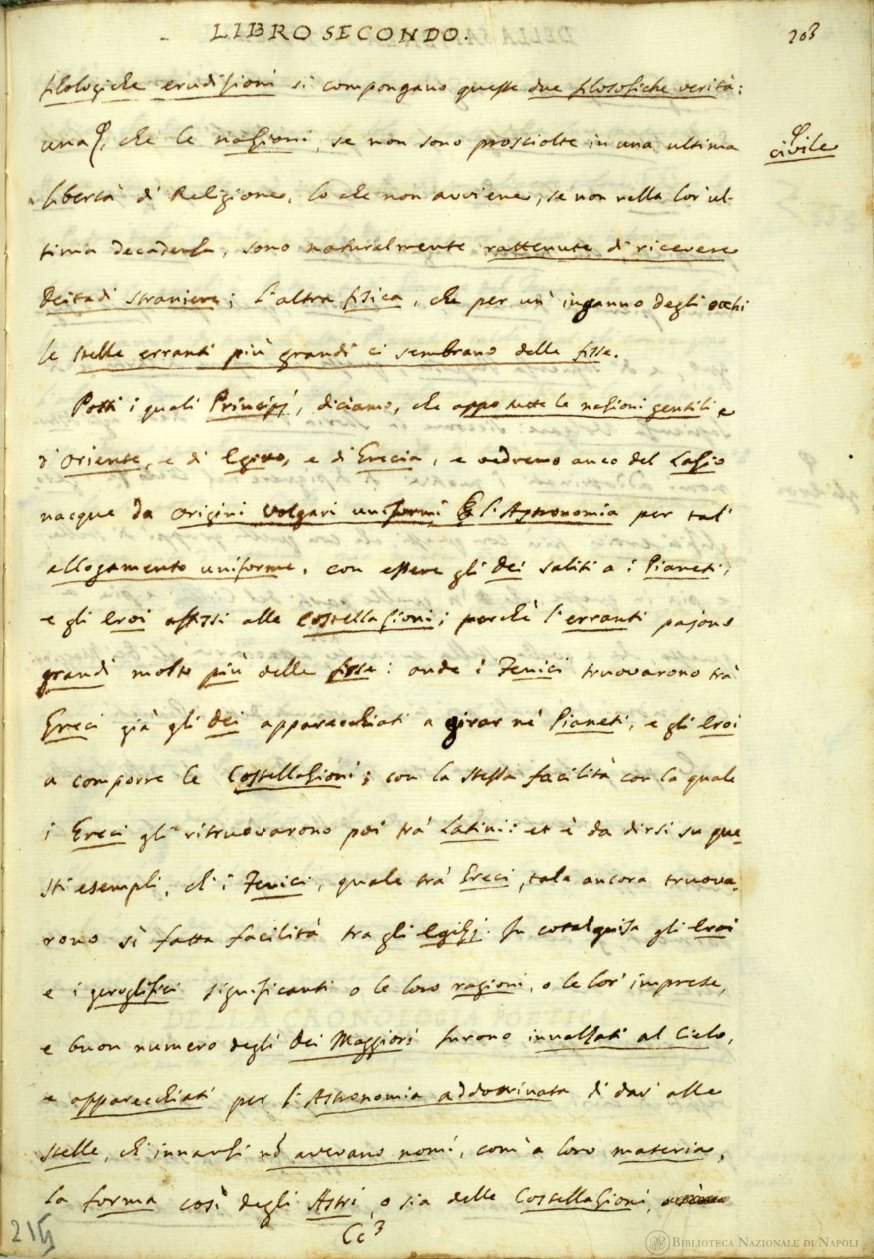 LIBRO SECONDO.
203
filologiche erudizioni si compongano queste due filosofiche verità:
una φ, che le nazioni, se non sono prosciolte in una ultima
φ civile
libertà di Religione, lo che non avviene, se non nella lor' ul-
tima decadenza, sono naturalmente rattenute di ricevere
Deitadi straniere; l'altra fisica, che per un' inganno degli occhi
le stelle erranti più grandi ci sembrano delle fisse.
Posti i quali Principj, diciamo, che appo tutte le nazioni gentili e
d' Oriente, e di Egitto, e di Grecia, e vedremo anco del Lazio
nacque da origini volgari uniformi l'Astronomia per tal'
allogamento uniforme, con essere gli Dei saliti a i Pianeti,
e gli Eroi affissi alle Costellazioni; perchè l'erranti pajono
grandi molto più delle fisse: onde i Fenici truovarono tra'
Greci già gli Dei apparecchiati a girar ne' Pianeti, e gli Eroi
a comporre le Costellazioni; con la stessa facilità con la quale
i Greci gli ritruovarono poi tra' Latini: et è da dirsi su que-
sti esempli, ch' i Fenici, quale tra' Greci, tale ancora truova-
rono sì fatta facilità tra gli Egizj. In cotal guisa gli Eroi
e i geroglifici significanti o le loro ragioni, o le lor' imprese,
e buon numero degli Dei Maggiori furono innalzati al Cielo,
e apparecchiati per l'Astronomia addottrinata di dar' alle
stelle, ch' innanzi nõ avevano nomi, com' a loro materia,
la forma così degli Astri, o sia delle Costellazioni,
Cc 3
215
BIBLIOTECA NAZIONALE DI NAPOLI